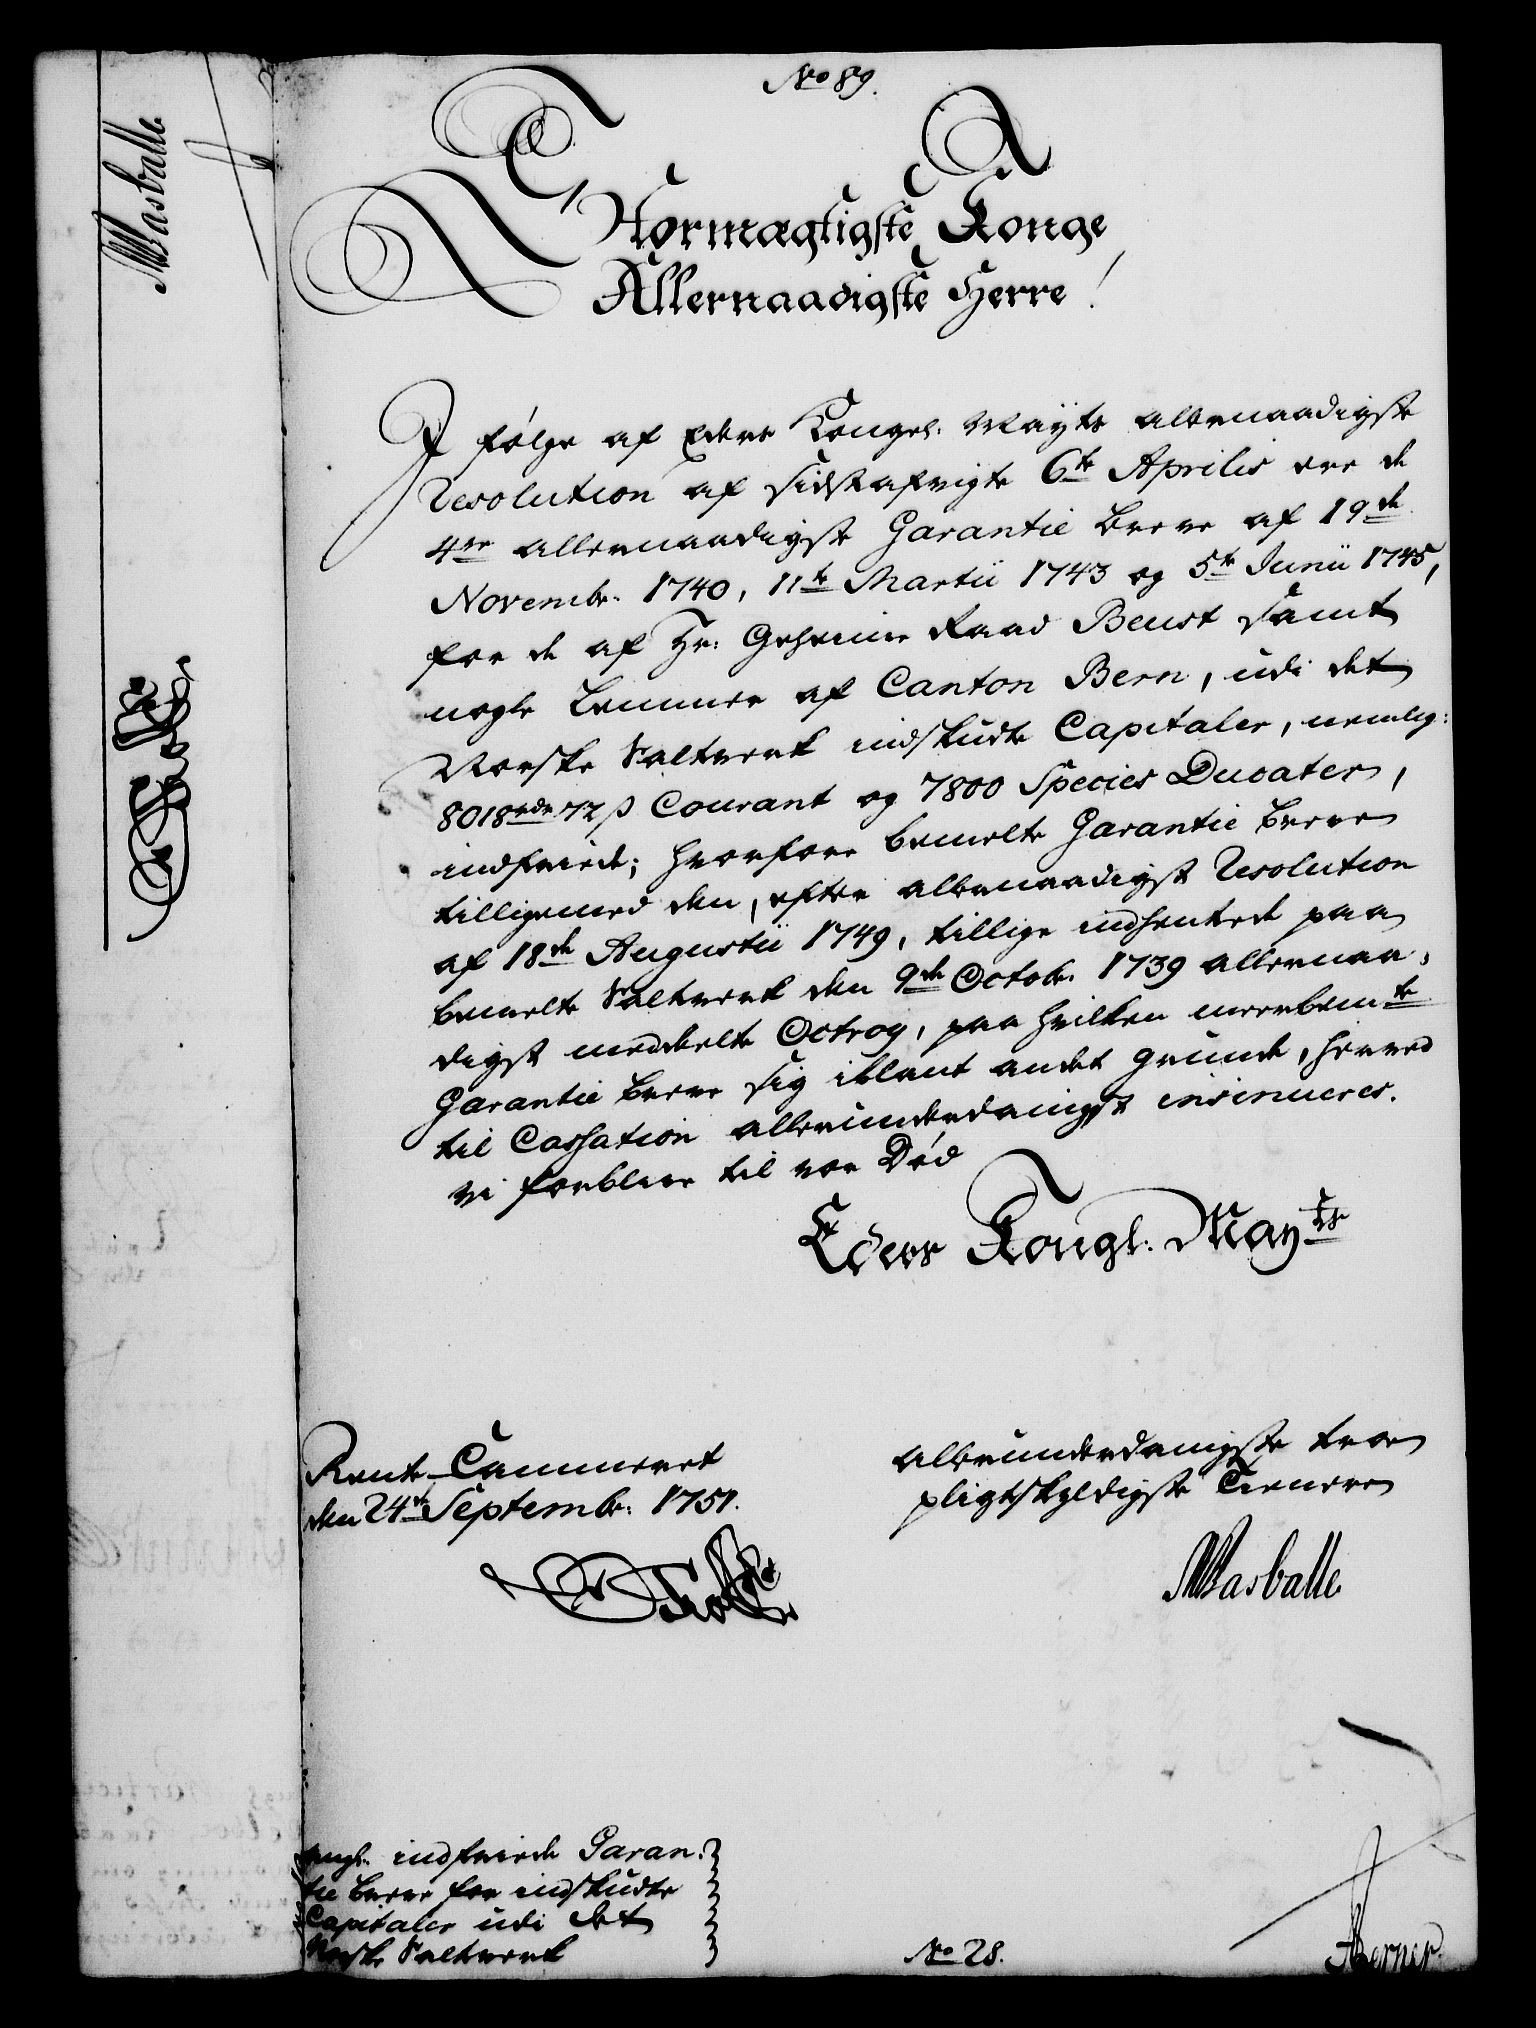 No 89.
Stormægtigste Konge
Allernaadigste Herre!
I følge af Eders Kongel. Mayts allernaadigste
Resolution af sidstafvigte 6te Aprilis ere de
4re allernaadigst Garantie breve af 19de
Novembr. 1740, 11te Martii 1743 og 5te Junii 1745,
for de af Hr. Geheime Raad Beust samt
nogle Lemmer af Canton Bern, udi det
Norske Saltverk indskudte Capitaler, nemlig:
8018 rdr 72 β Courant og 7800 Species Ducater,
indfriede; hvorfore bemelte Garantie breve
tilligemed den, efter allernaadigst Resolution
af 18de Augustii 1749, tillige indhentede paa
bemelte Saltverk den 9de Octobr. 1739 allernaa-
digst meddelte Octroy, paa hvilken meerbemte
Garantie breve sig iblant andet grunde, herved
til Cassation allerunderdanigst insinueres.
vi forblive til vor Død
Eders Kongl. Mayts
Rente-Cammeret
den 24de Septembr. 1751.
allerunderdanigste troe
pligtskyldigste Tienere
Masballe
angl. indfriede Garan-
tie breve for indskudte
Capitaler udi det
Norske Saltverk
No 28.
Masballe